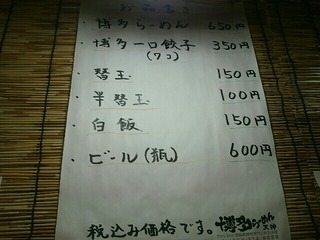 ・博多らーめん 650円
・博多一口餃子 350円
(7コ)
・替玉 150円
・半替玉 100円
・白飯 150円
・ビール(瓶) 600円
税込み価格です。
博多らーめん
天神